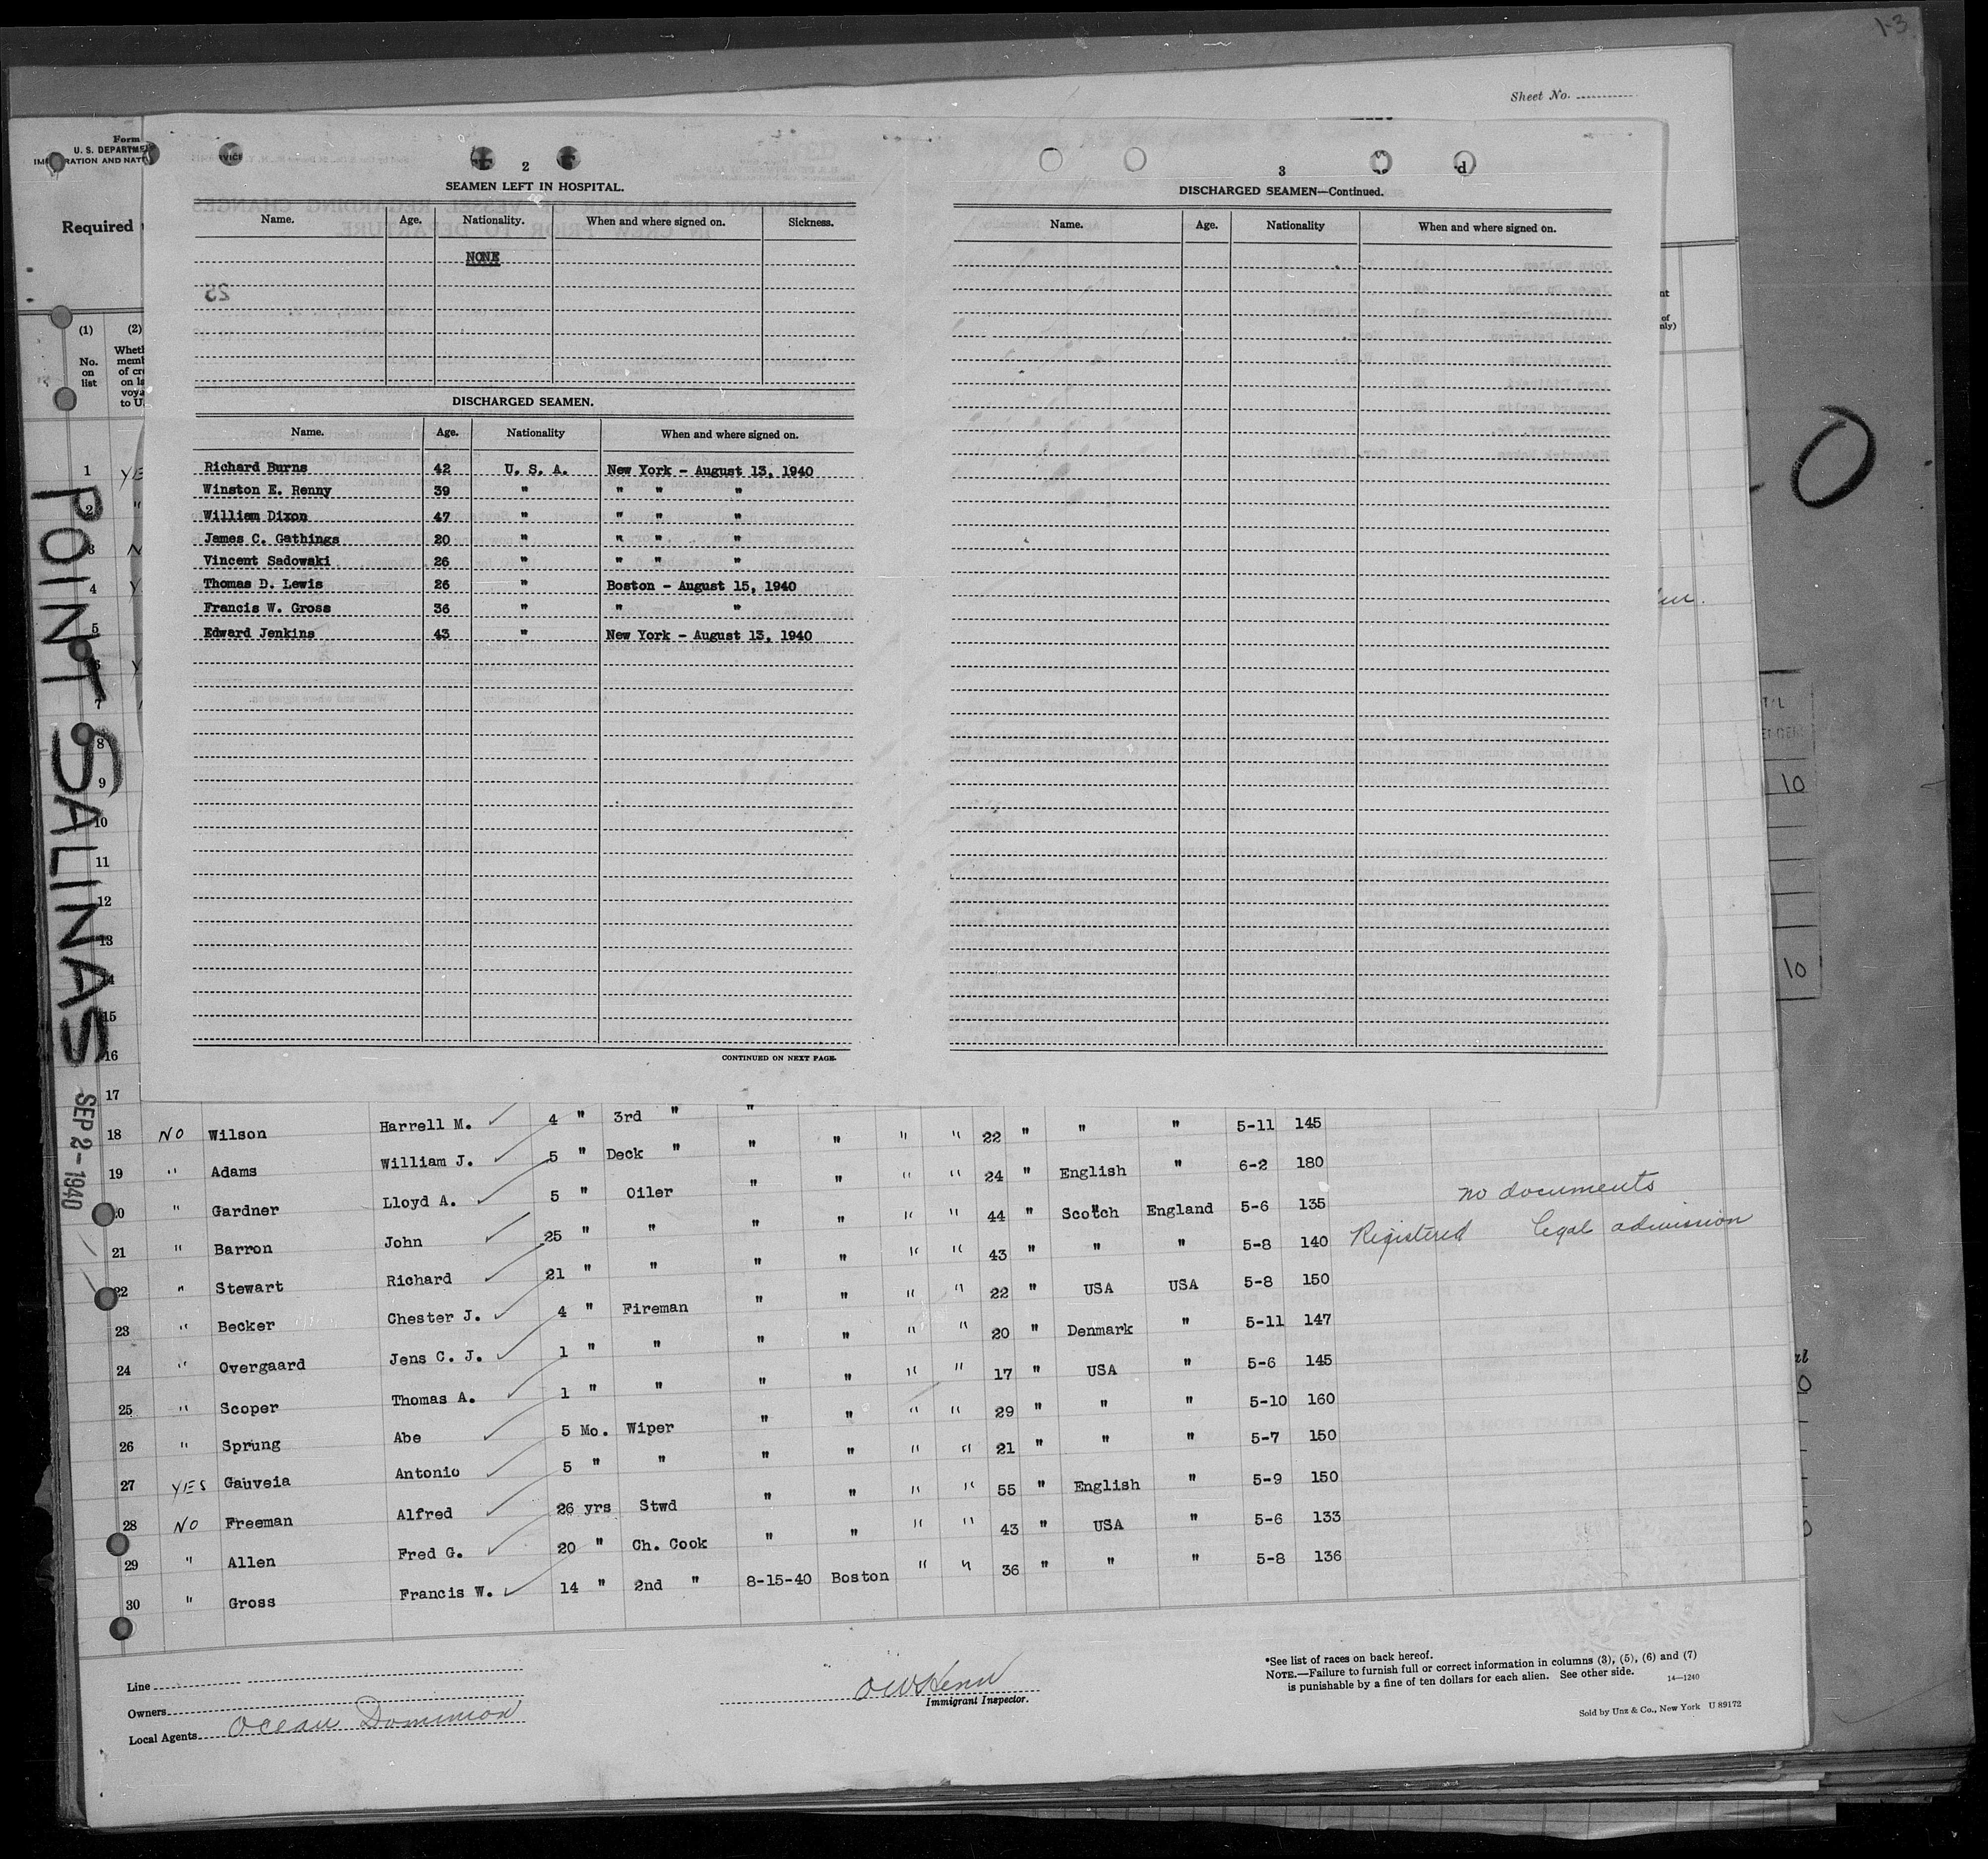 1-3
Sheet No.
Form
U. S. DEPARTME
IMMIGRATION AND NAT
VICE
Required
(1) (2)
No. on list
Whet
memb
of cre
on la
voya
to U.
2
SEAMEN LEFT IN HOSPITAL.
Name. Age. Nationality. When and where signed on. Sickness.
NONE
25
DISCHARGED SEAMEN.
Name. Age. Nationality When and where signed on.
Richard Burns 42 U. S. A. New York - August 13, 1940
Winston E. Renny 39 " " " "
William Dixon 47 " " " "
James C. Gathings 20 " " " "
Vincent Sadowski 26 " " " "
Thomas D. Lewis 26 " Boston - August 15, 1940
Francis W. Gross 36 " " "
Edward Jenkins 43 " New York - August 13, 1940
CONTINUED ON NEXT PAGE.
3
DISCHARGED SEAMEN—Continued.
Name. Age. Nationality When and where signed on.
POINT SALINAS
SEP 2 - 1940
1
2
3
4
5
6
7
8
9
10
11
12
13
14
15
16
17
18 NO Wilson Harrell M. 4 " 3rd " " " " " 22 " " " 5-11 145
19 " Adams William J. 5 " Deck " " " " " 24 " English " 6-2 180
20 " Gardner Lloyd A. 5 " Oiler " " " " 44 " Scotch England 5-6 135 no documents
21 " Barron John 25 " " " " " " 43 " " " 5-8 140 Registered legal admission
22 " Stewart Richard 21 " " " " " " 22 " USA USA 5-8 150
23 " Becker Chester J. 4 " Fireman " " " " 20 " Denmark " 5-11 147
24 " Overgaard Jens C. J. 1 " " " " " " 17 " USA " 5-6 145
25 " Scoper Thomas A. 1 " " " " " " 29 " " " 5-10 160
26 " Sprung Abe 5 Mo. Wiper " " " " 21 " " " 5-7 150
27 YES Gauveia Antonio 5 " " " " " " 55 " English " 5-9 150
28 NO Freeman Alfred 26 yrs Stwd " " " " 43 " USA " 5-6 133
29 " Allen Fred G. 20 " Ch. Cook " " " " 36 " " " 5-8 136
30 " Gross Francis W. 14 " 2nd " 8-15-40 Boston
Line
Owners
Local Agents Ocean Dominion
Immigrant Inspector.
*See list of races on back hereof.
NOTE.—Failure to furnish full or correct information in columns (3), (5), (6) and (7)
is punishable by a fine of ten dollars for each alien. See other side.
14—1240
Sold by Unz & Co., New York U 89172
10
10